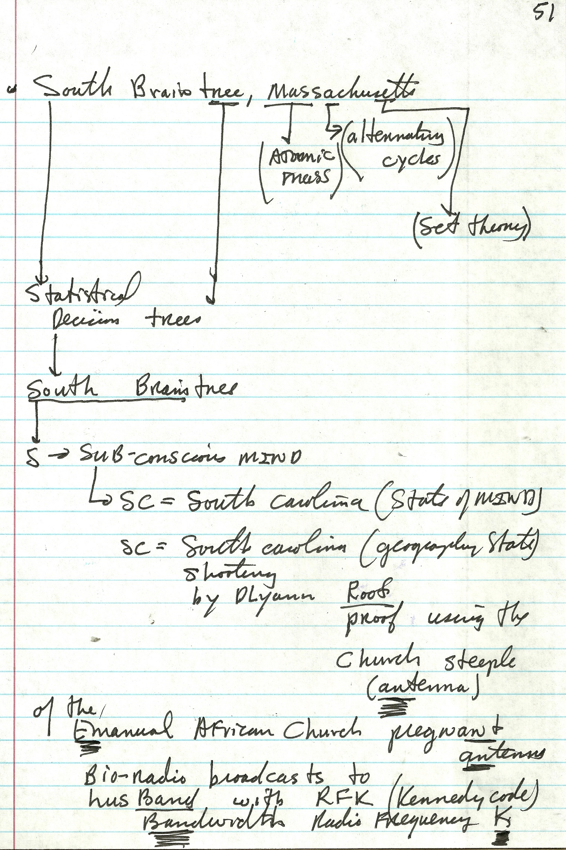 51
South Braintree, Massachusetts
(Atomic mass) (alternating cycles)
(Set theory)
Statistical
Decision trees
South Braintree
S → SUB-conscious MIND
SC = South Carolina (State of MIND)
SC = South Carolina (geography State)
shooting
by DLyann Roof
proof using the
Church steeple
(antenna)
of the
Emanual African Church pregnant
antenna
Bio-radio broadcasts to
husBand with RFK (Kennedy code)
Bandwidth Radio Frequency K